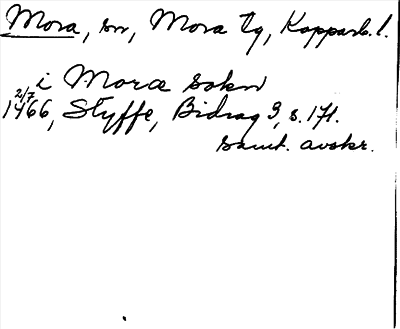 Mora, sn, Mora tg, Kopparb. l.
i Moræ sokn
2/7
1466, Styffe, Bidrag 3, s. 171.
samt. avskr.